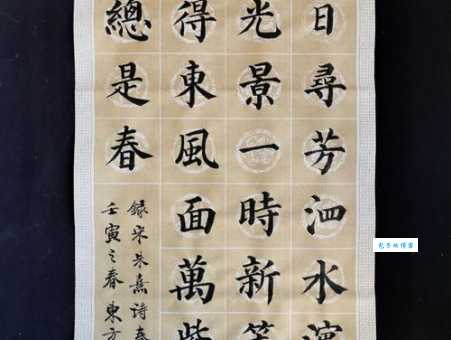 日尋芳泗水濱
光景一時新等
得東風面萬紫
總是春
錄宋朱熹詩春
壬寅之春東方